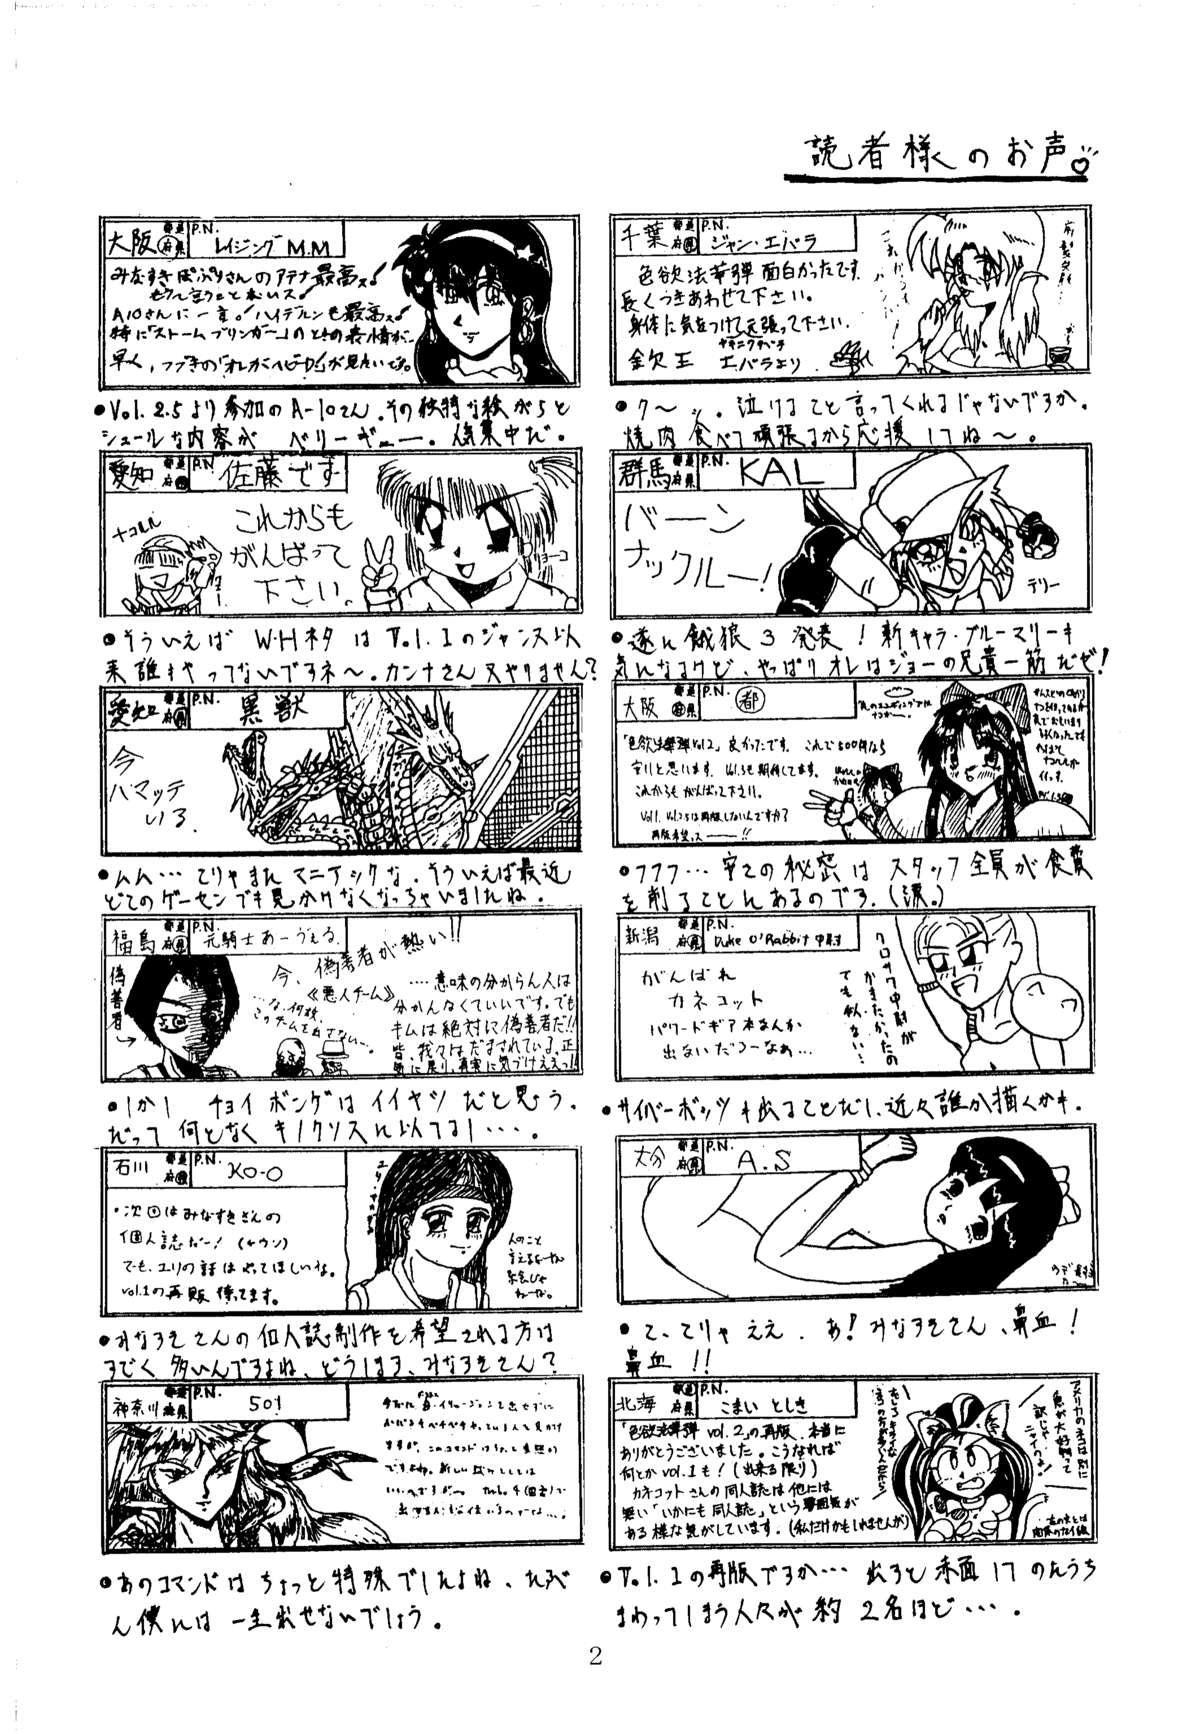 読者様のお声
千葉 都道府県 P.N. ジャン・エバラ
色欲法華弾 面白かったです。
長くつきあわせて下さい。
身体に気をつけて頑張って下さい。
エバラより
ク〜ッ。泣けること言ってくれるじゃないですか。
焼肉食べて頑張るから応援してね〜。
群馬 都道府県 P.N. KAL
バーン
ナックルー!
テリー
遂に餓狼3発表!新キャラ・ブルーマリーも
気になるけど、やっぱりオレはジョーの兄貴一筋だぜ!
大阪 都道府県 P.N. 都
「色欲法華弾Vol.2」良かったです。これで500円なら
安いと思います。Vol.3も期待してます。
これからもがんばって下さい。
Vol1. Vol.2.5は再版しないんですか?
再版希望ッスーー!!
フフフ…安さの秘密はスタッフ全員が食費
を削ることにあるのです。(涙。)
新潟 都道府県 P.N. Duke O'Rabbit 中尉
がんばれ
カネコット
パワードギア本なんか
出ないだろーなぁ…
クロサワ中尉が
かきたかったの
でも似ない…
サイバーボッツも出ることだし、近々誰か描くかも。
大分 都道府県 P.N. A.S
で、でりゃええ。あ!みなづきさん、鼻血!
鼻血!!
北海 都道府県 P.N. こまい としき
「色欲法華弾 vol.2」の再版、本当に
ありがとうございました。こうなれば
何とかvol.1も!(出来る限り)
カネコットさんの同人誌は他には
無い「いかにも同人誌」という雰囲気が
ある様な気がしています。(私だけかもしれませんが)
アメリカのネコは別に
魚が大好物って
訳じゃ
ニャイのよ!
Vol.1の再版ですか…出すと赤面してのたうち
まわってしまう人々が約2名ほど…。
大阪 都道府県 P.N. レイジングM.M
みなづきぱぷりさんのアテナ最高ッス!
もう言うことないッス!
A10さんに一言。ハイデルンも最高ッス!
特に「ストームブリンガー」のときの表情が…
早く、つづきの「オレがヘビーD!」が見たいです。
Vol.2.5より参加のA-10さん。その独特な絵がらと
シュールな内容がベリーギュー。人気集中だ。
愛知 都道府県 P.N. 佐藤です
これからも
がんばって
下さい。
ナコルル
リョーコ
そういえばW・HネタはVol.1のジャンヌ以
来誰もやってないですネ〜。カンナさん又やりません?
愛知 都道府県 P.N. 黒獣
今
ハマッテ
いる.
ムム…でりゃまたマニアックな。そういえば最近
どこのゲーセンでも見かけなくなっちゃいましたね。
福島 都道府県 P.N. 元騎士あーヴぇる.
今、偽善者が熱い!!
《悪人チーム》
偽善者
…な、何故、
このチームを出さない…。
……意味の分からん人は
分かんなくていいです。でも
キムは絶対に偽善者だ!!
皆、我々はだまされている。正
気に戻り、真実に気づけえぇっ!!
しかし チョイ ボンゲはイイヤツだと思う。
だって何となくキノクリスに似てるし…。
石川 都道府県 P.N. KO-O
・次回はみなづきさんの
個人誌だー!(チウン)
でも、ユリの話はやってほしいな。
vol.1の再販待ってます。
人のこと
言えるよーな
絵じゃ
ねーな。
みなづきさんの個人誌制作を希望される方は
すごく多いんですよね、どうします、みなづきさん?
神奈川 都道府県 P.N. 501
あのコマンドはちょっと特殊でしたよね、たぶ
ん僕には一生出せないでしょう。
2